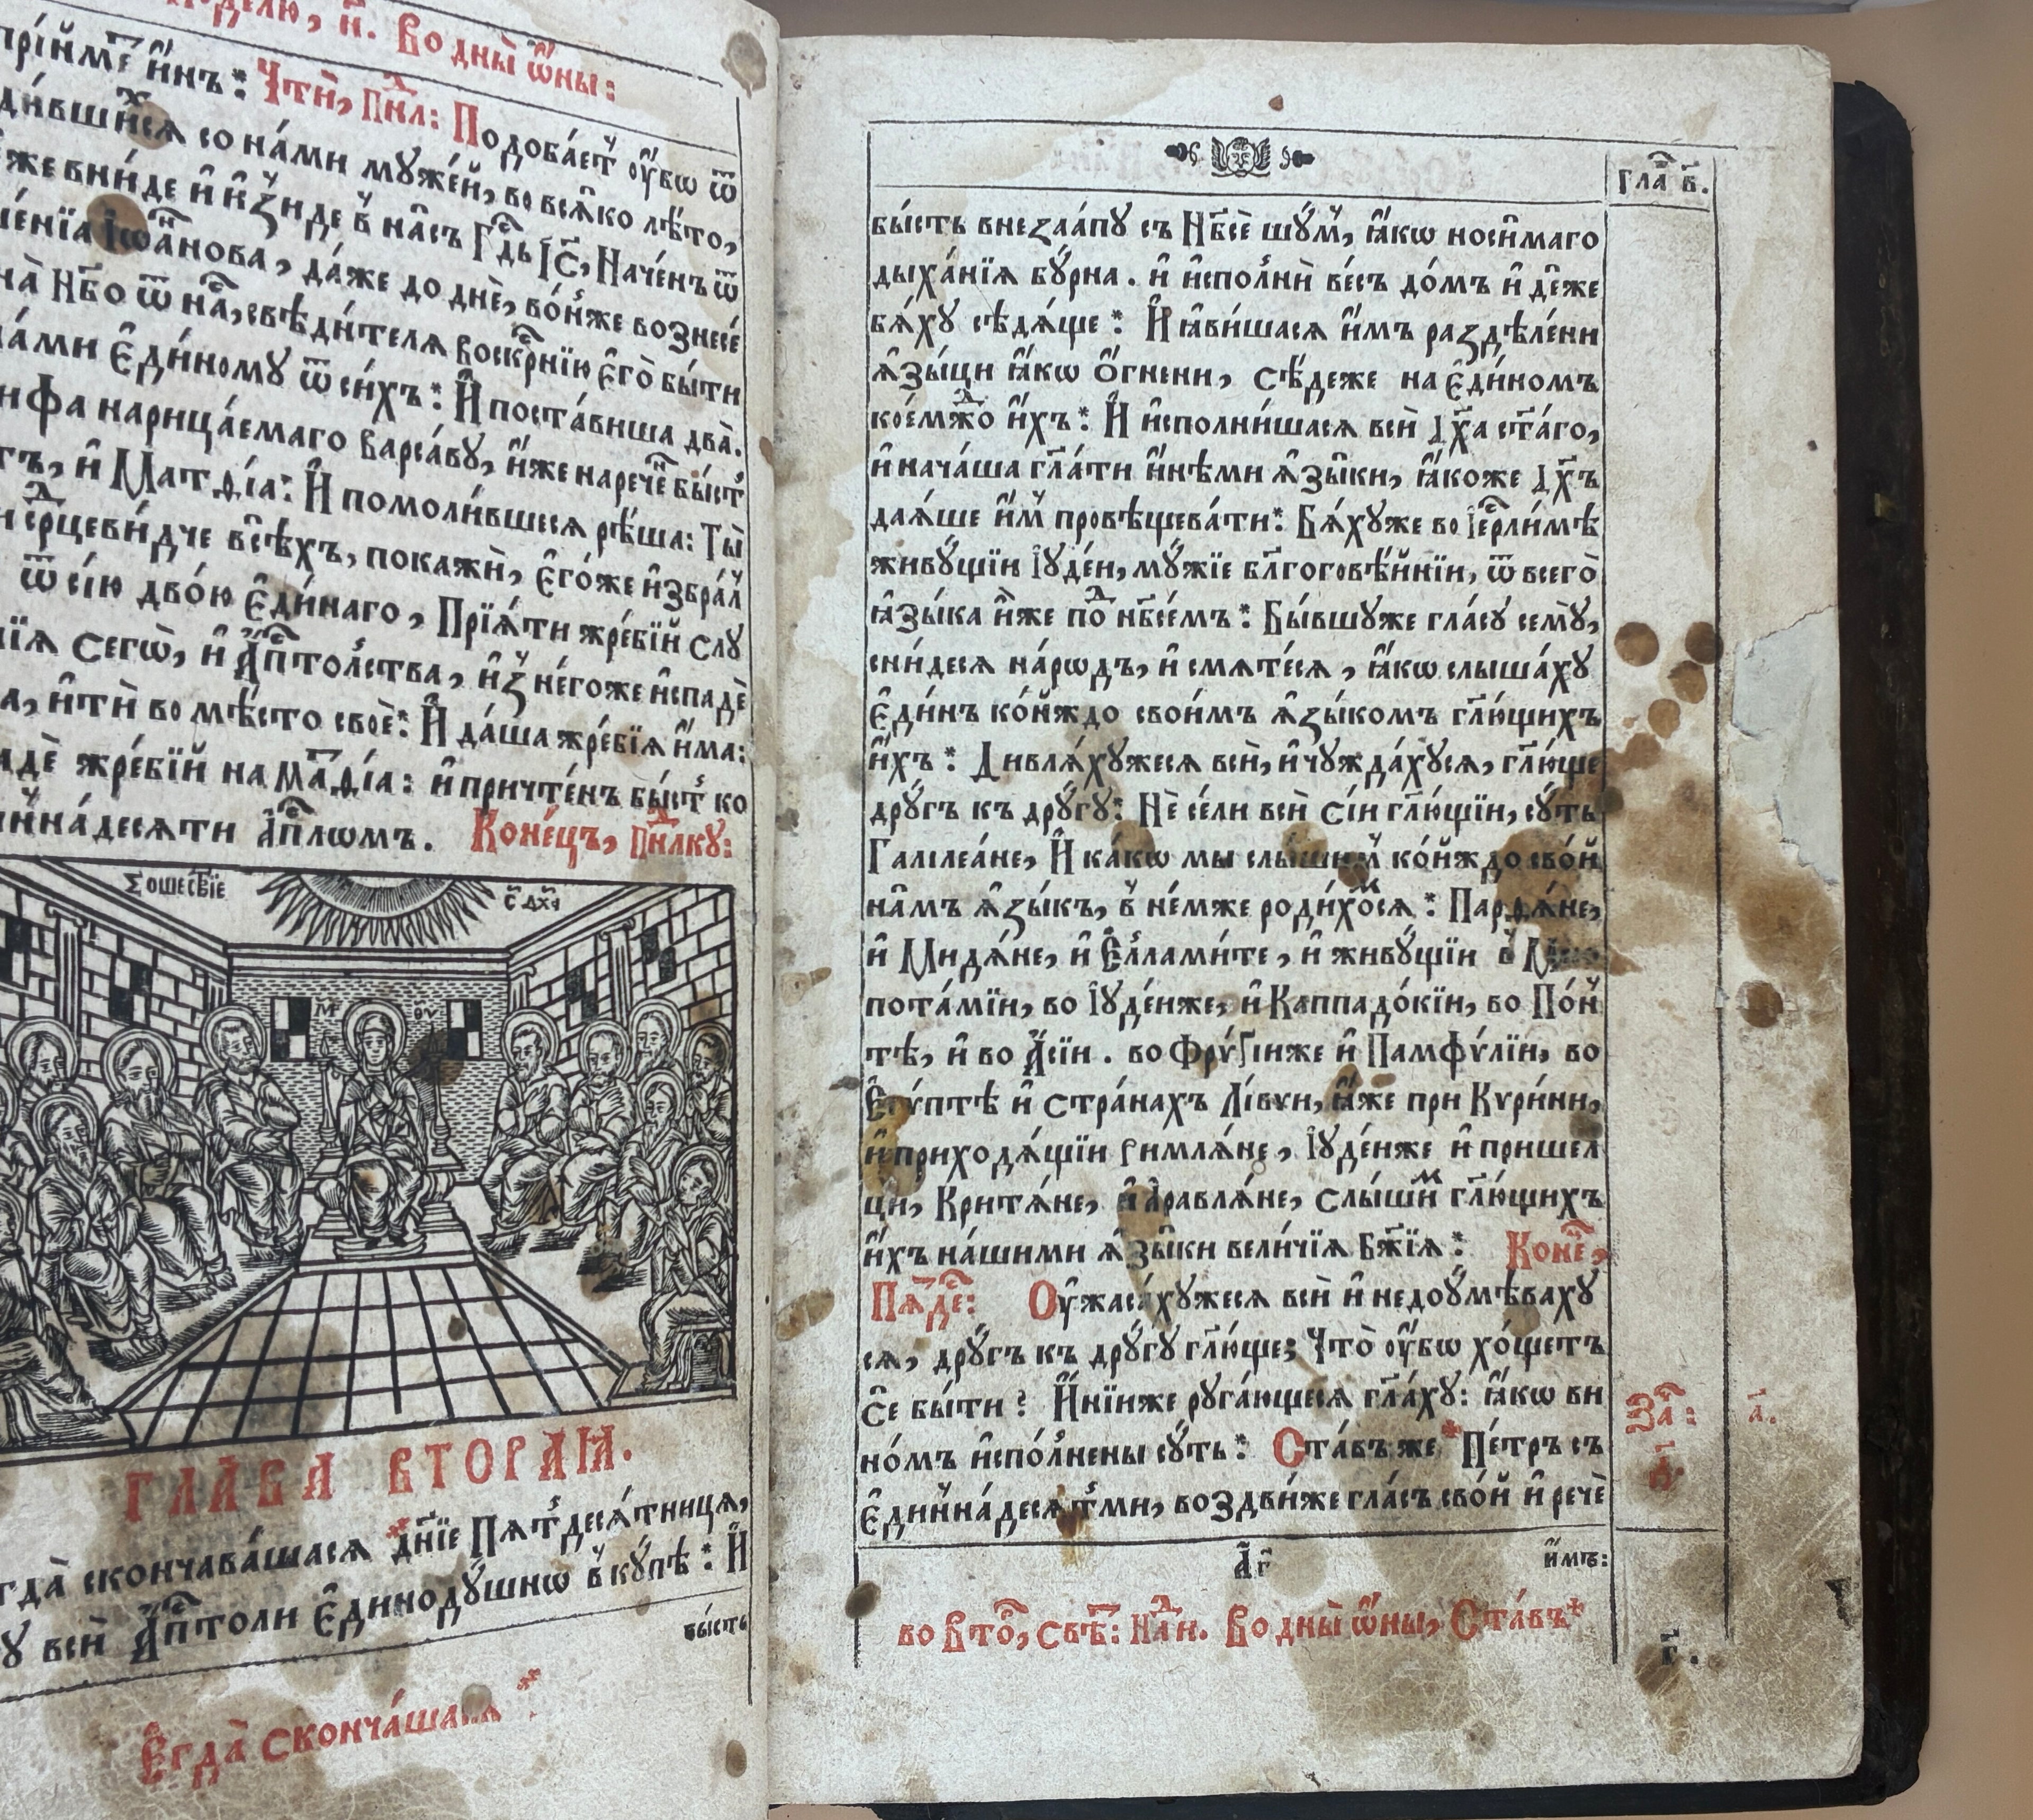 Во дны̀ ѿны:
прїймє́ и́нъ: Чтѝ, пнл: Подоба́етъ ᲂу҆́бѡ ѿ
со на́ми муже́й, во вся̑ко лѣ́то,
же вни́де и҆ и҆зы́де в̾ на́съ Гдь І҆с, Наче́нъ ѿ
І҆ѡа́ннова, да́же до днѐ, во́ньже вознесе́
на̀ Нб҃о ѿ на́с, свѣди́теля воскр҇нїю є҆гѡ̀ бы́ти
на́ми є҆ди́ному ѿ си́хъ: И҆ поста́виша два̀.
нарица́емаго Варса́ву, и҆́же нарече́н бы́сть
и҆ Матѳі́а: И҆ помоли́вшеся рѣ́ша: Ты̀
ср҃цеви́дче всѣ́хъ, покажѝ, є҆го́же и҆збра́л
ѿ сїю двою̀ є҆ди́наго, Прїя́ти жре́бїй слу
нїя сегѡ̀, и҆ А҆п҇тольства, и҆з̾ него́же и҆спадѐ
и҆тѝ во мѣ́сто своѐ: И҆ да́ша жре́бїя и҆́ма:
падѐ жре́бїй на Маѳі́а: и҆ причте́нъ бы́ст ко
на́десяти а҆п҇лѡмъ. Коне́цъ, пнлку:
Сошествїе
с҃ дх҃а
М҃Р Ѳ҃У
ГЛАВА ВТОРАЯ.
скончава́шася дн҃їе Пятдеся́тница,
всѝ А҆п҇толи є҆динодꙋ́шнѡ вкꙋ́пѣ: И҆
бысть
Є҆гда̀ сконча́шася
Гла в҃.
бы́сть внеꙁаа́пу съ Нб҃сѐ шꙋ́м, ꙗ҆́кѡ носи́маго
дыха́нїя бꙋ́рна. и҆ и҆спо́лнѝ ве́сь до́мъ и҆ дѣ́же
бя́ху сѣдя́ще: И҆ ꙗ҆ви́шася и҆́мъ раꙁдѣле́ни
ѧ҆зы́цы ꙗ҆́кѡ О҆́гнени, Сѣ́деже на є҆ди́номъ
кое́мждо и҆́хъ: И҆ и҆сполни́шася всѝ Дх҃а ст҃а́го,
и҆ нача́ша гл҃ати и҆нѣ́ми ѧ҆ꙁы̑ки, ꙗ҆́коже Дх҃ъ
дая́ше и҆́м провѣщева́ти: Бя́хуже во І҆ер҇ли́мѣ
живꙋ́щїи І҆уде́и, мꙋ́жїе бл҃гоговѣ́йнїи, ѿ всегѡ̀
ꙗ҆зы́ка и҆́же под нб҃се́мъ: Бы́вшуже гла́су семꙋ̀,
сни́деся на́рѡдъ, и҆ смяте́ся, ꙗ҆́кѡ слыша́ху
є҆ди́нъ ко́йждо свои́мъ ѧ҆ꙁы́комъ гл҃ю́щихъ
и҆́хъ: Дивля́хужеся всѝ, и҆ чужда́хуся, гл҃ю́ще
дрꙋ́гъ къ дрꙋ́гу: Не се́ли всѝ Сі́и гл҃ю́щїи, сꙋ́ть
Галіле́ане, И҆ ка́кѡ мы слы́шим ко́йждо сво́й
на́мъ ѧ҆ꙁы́къ, в̾ не́мже роди́хомся: Парѳя́не,
и҆ Мидя́не, и҆ Є҆ллами́те, и҆ живꙋ́щїи в̾ Месо
пота́мїи, во І҆уде́иже, и҆ Каппадо́кїи, во По́н
тѣ, и҆ во А҆́сїи. во Фрѵгі́иже и҆ Памфѵ́лїи, во
Є҆гѵ́птѣ и҆ стра́нахъ Лі́вѵи, ꙗ҆́же при Кѵри́ни,
и҆ приходя́щїи ри́мляне, І҆уде́иже и҆ пришел
ци, Критя́не, и҆ а҆равля́не, слы́шим гл҃ю́щихъ
и҆́хъ на́шими ѧ҆ꙁы̑ки вели́чїя Бж҃їя: Коне́,
Пяде: ᲂу҆жаса́хужеся всѝ и҆ недоꙋмѣ́ваху
ся, дрꙋ́гъ къ дрꙋ́гу гл҃ю́ще; Что̀ ᲂу҆́бѡ хо́щетъ
Сѐ бы́ти? И҆ні́иже руга́ющеся гл҃аху: ꙗ҆́кѡ ви
но́мъ и҆спо́лнены сꙋ́ть: Ста́въже * Пе́тръ съ
є҆диннáдеся́тми, воздви́же гла́съ сво́й и҆ речѐ
Зач: а҃.
д҃.
и҆́мъ:
А г҃
во Вто, свѣ: Нди. Во дны̀ ѿны, Ста́въ *
г҃.